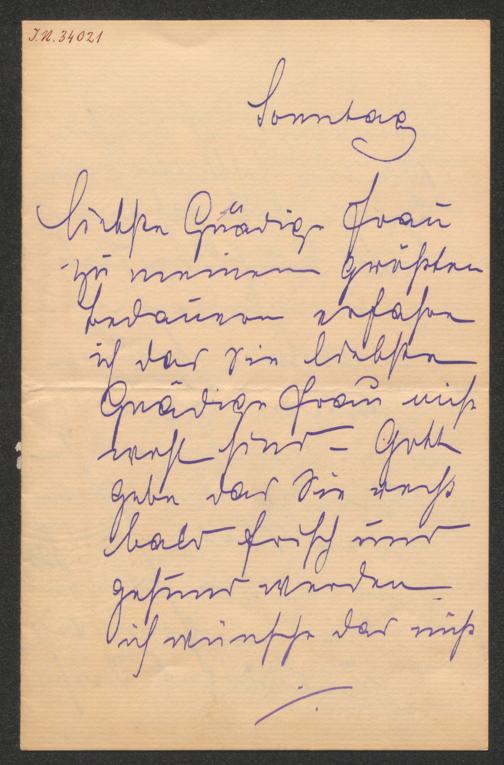 J.N. 34021
Sonntag
liebste Gnädige Frau
zu meinem größten
bedauern erfahre
ich das Sie liebste
Gnädige Frau nicht
wohl sind – Gott
gebe das Sie recht
bald frisch und
gesund werden
ich wünsche das nicht